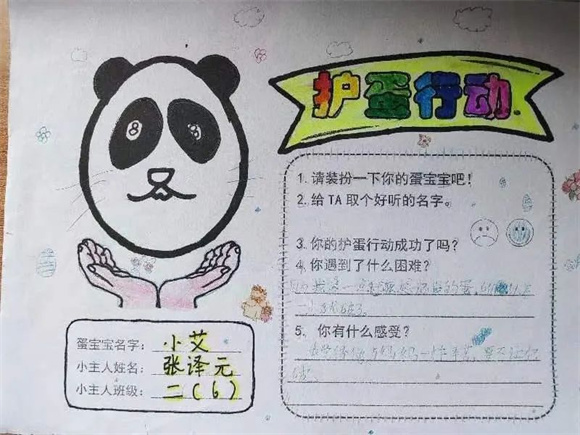 护蛋行动
1. 请装扮一下你的蛋宝宝吧！
2. 给TA取个好听的名字。
3. 你的护蛋行动成功了吗？
4. 你遇到了什么困难？
5. 你有什么感受？
蛋宝宝名字： 小艾
小主人姓名： 张泽元
小主人班级： 二（6）